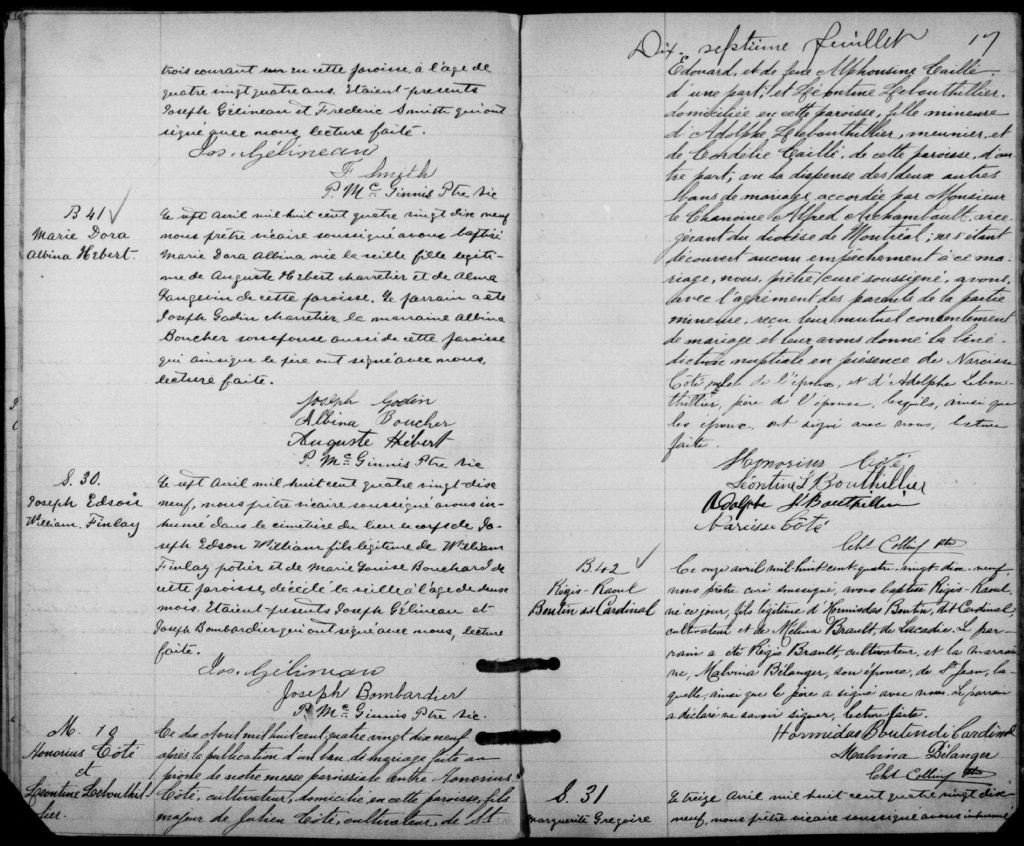 trois courant en cette paroisse, à l'age de
quatre vingt quatre ans. Etaient presents
Joseph Gélineau et Frederic Smith qui ont
signé avec nous, lecture faite.
Jos. Gélineau
F Smith
P. Mc Ginnis Ptre Vic
B 41
Marie Dora
Albina Hebert.
Le sept Avril mil huit cent quatre vingt dix neuf
nous prêtre vicaire soussigné avons baptisé
Marie Dora Albina née la veille fille legiti-
me de Auguste Hebert charretier et de Alma
Langevin de cette paroisse. Le parrain a ete
Joseph Godin charretier la marraine Albina
Boucher son epouse aussi de cette paroisse
qui ainsi que le père ont signé avec nous,
lecture faite.
Joseph Godin
Albina Boucher
Auguste Hébert
P. Mc Ginnis Ptre Vic
S. 30.
Joseph Edson
William Finlay
Le sept Avril mil huit cent quatre vingt dix
neuf, nous prêtre vicaire soussigné avons in-
humé dans le cimetière du lieu le corps de Jo-
seph Edson William fils légitime de William
Finlay potier et de Marie Louise Bouchard de
cette paroisse, décédé la veille à l'age de
mois. Etaient presents Joseph Gélineau et
Joseph Bombardier qui ont signé avec nous, lecture
faite.
Jos. Gélineau
Joseph Bombardier
P. Mc Ginnis Ptre Vic.
M. 10
Honorius Côté
et
Léontine Lebouthil
lier.
Ce dix Avril mil huit cent quatre vingt dix neuf
après la publication d'un ban de mariage faite au
prône de notre messe paroissiale entre Honorius
Côté, cultivateur, domicilié en cette paroisse, fils
majeur de Julien Côté, cultivateur, de St
Dix-septième feuillet 17
Edouard, et de feue Alphonsine Caillé
d'une part; et Léontine Lebouthillier,
domiciliée en cette paroisse, fille mineure
d'Adolphe Lebouthillier, meunier, et
de Cordélie Caillé, de cette paroisse, d'au
tre part, vu la dispense des deux autres
bans de mariage accordée par Monsieur
le Chanoine Alfred Archambault, vice-
gérant du diocèse de Montréal; ne s'étant
découvert aucun empêchement à ce ma-
riage, nous, prêtre curé soussigné, avons,
avec l'agrément des parents de la partie
mineure, reçu leur mutuel consentement
de mariage et leur avons donné la béné-
diction nuptiale en présence de Narcisse
Côté, oncle de l'époux, et d'Adolphe Lebou-
thillier, père de l'épouse, lesquels, ainsi que
les époux, ont signé avec nous, lecture
faite.
Honorius Côté
Léontine L Bouthillier
Adolphe L Bouthillier
Narcisse Côté
Collin Ptre
B. 42
Régis-Raoul
Boutin dit Cardinal
Ce onze avril mil huit cent quatre-vingt-dix-neuf
nous prêtre curé soussigné, avons baptisé Régis-Raoul,
né ce jour, fils légitime d'Hormisdas Boutin, dit Cardinal,
cultivateur et de Mélina Brault, de Lacadie. Le par-
rain a été Régis Brault, cultivateur, et la marrai
ne, Malvina Bélanger, son épouse, de St Jean, la-
quelle, ainsi que le père a signé avec nous. Le parrain
a déclaré ne savoir signer, lecture faite.
Hormidas Boutin di Cardinal
Malvina Bélanger
Collin Ptre
S. 31
Marguerite Gregoire
Le treize Avril mil huit cent quatre vingt dix
neuf, nous prêtre vicaire soussigné avons inhumé